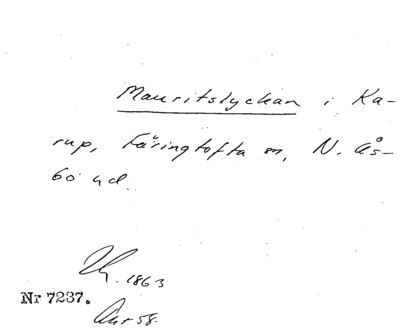 Mauritslyckan i Ka-
rup, Färingtofta sn, N. Ås-
bo hd.
1863
Nr 7237.
58.